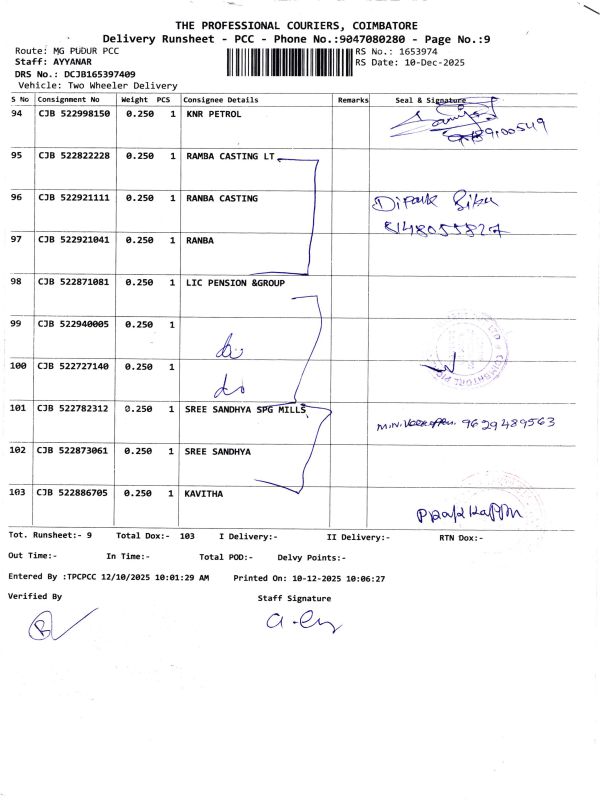 THE PROFESSIONAL COURIERS, COIMBATORE
Delivery Runsheet - PCC - Phone No.:9047080280 - Page No.:9
Route: MG PUDUR PCC RS No.: 1653974
Staff: AYYANAR RS Date: 10-Dec-2025
DRS No.: DCJB165397409
Vehicle: Two Wheeler Delivery
S No Consignment No Weight PCS Consignee Details Remarks Seal & Signature
94 CJB 522998150 0.250 1 KNR PETROL
95 CJB 522822228 0.250 1 RAMBA CASTING LT
96 CJB 522921111 0.250 1 RANBA CASTING Dipak
97 CJB 522921041 0.250 1 RANBA 8148055827
98 CJB 522871081 0.250 1 LIC PENSION &GROUP
99 CJB 522940005 0.250 1 do
100 CJB 522727140 0.250 1 do
101 CJB 522782312 0.250 1 SREE SANDHYA SPG MILLS 9629489563
102 CJB 522873061 0.250 1 SREE SANDHYA
103 CJB 522886705 0.250 1 KAVITHA
Tot. Runsheet:- 9 Total Dox:- 103 I Delivery:- II Delivery:- RTN Dox:-
Out Time:- In Time:- Total POD:- Delvy Points:-
Entered By :TPCPCC 12/10/2025 10:01:29 AM Printed On: 10-12-2025 10:06:27
Verified By Staff Signature